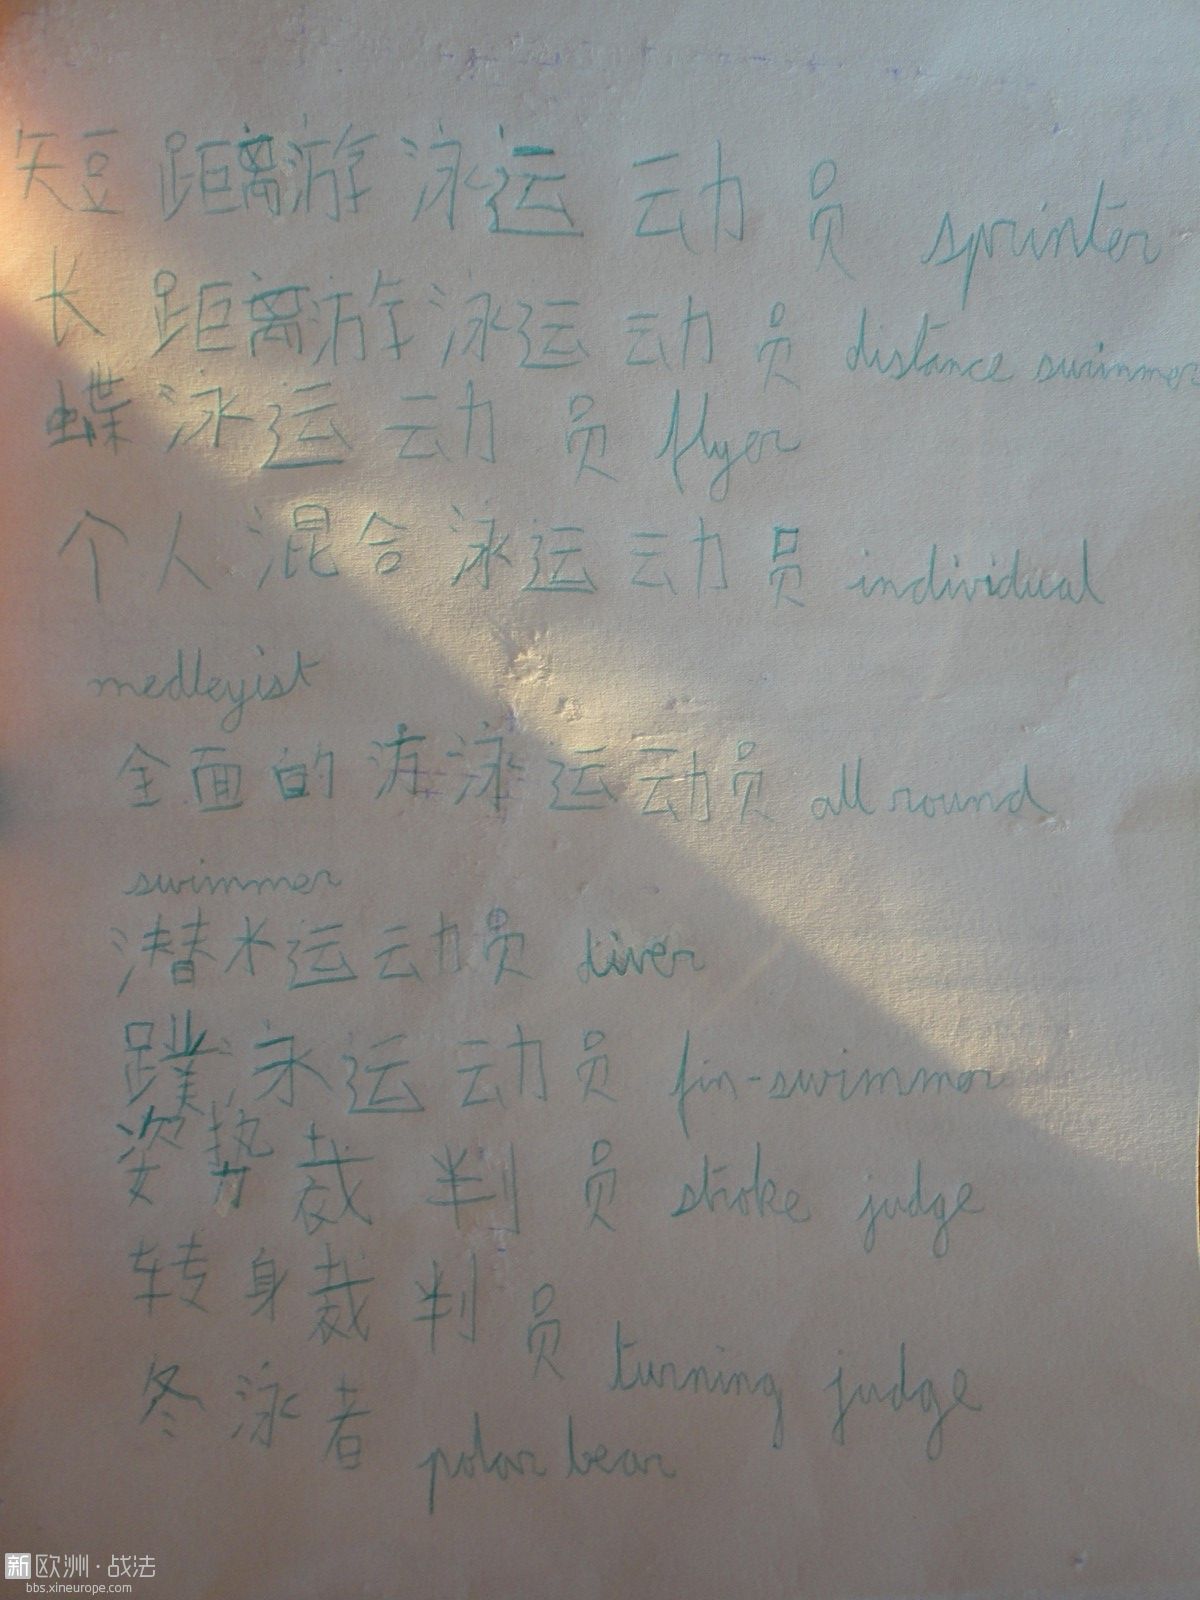 短距离游泳运动员 sprinter
长距离游泳运动员 distance swimmer
蝶泳运动员 flyer
个人混合泳运动员 individual
medleyist
全面的游泳运动员 all round
swimmer
潜水运动员 diver
蹼泳运动员 fin-swimmer
姿势裁判员 stroke judge
转身裁判员 turning judge
冬泳者 polar bear
新欧洲·战法
bbs.xineurope.com